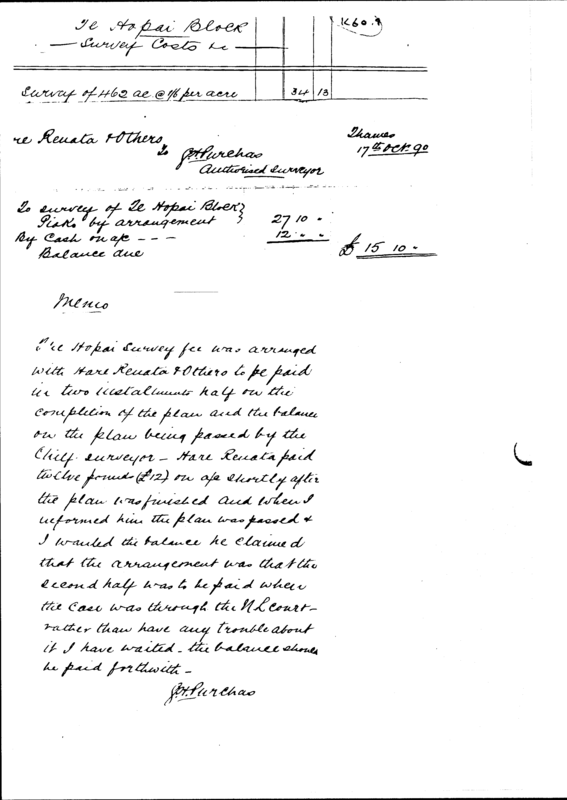 Te Hopai Block
K60.
— Survey Costs &c —
Survey of 462 ac @ 1/6 per acre 34 13
re Renata & Others
To J.H. Purchas
Authorised Surveyor
Thames
17th Oct. 90
To survey of Te Hopai Block }
Piako by arrangement } 27 10 "
By Cash on a/c - - - 12 " "
Balance due £ 15 10 "
Memo
The Hopai Survey fee was arranged
with Hare Renata & Others to be paid
in two instalments half on the
completion of the plan and the balance
on the plan being passed by the
Chief surveyor – Hare Renata paid
twelve pounds (£12) on a/c shortly after
the plan was finished and when I
informed him the plan was passed &
I wanted the balance he claimed
that the arrangement was that the
second half was to be paid when
the case was through the N L Court –
rather than have any trouble about
it I have waited – the balance should
be paid forthwith –
J.H. Purchas